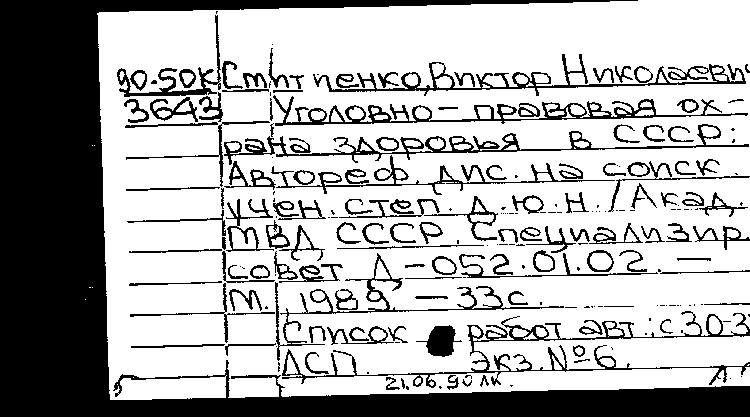 90-50К Смитиенко, Виктор Николаевич
3643 Уголовно-правовая ох-
рана здоровья в СССР:
Автореф. дис. на соиск.
учен. степ. д.ю.н. / Акад.
МВД СССР. Специализир.
совет Д-052.01.02. —
М., 1989. — 33с.
Список работ авт.: с.30-3
ДСП. Экз. №6.
21.06.90 ЛК.